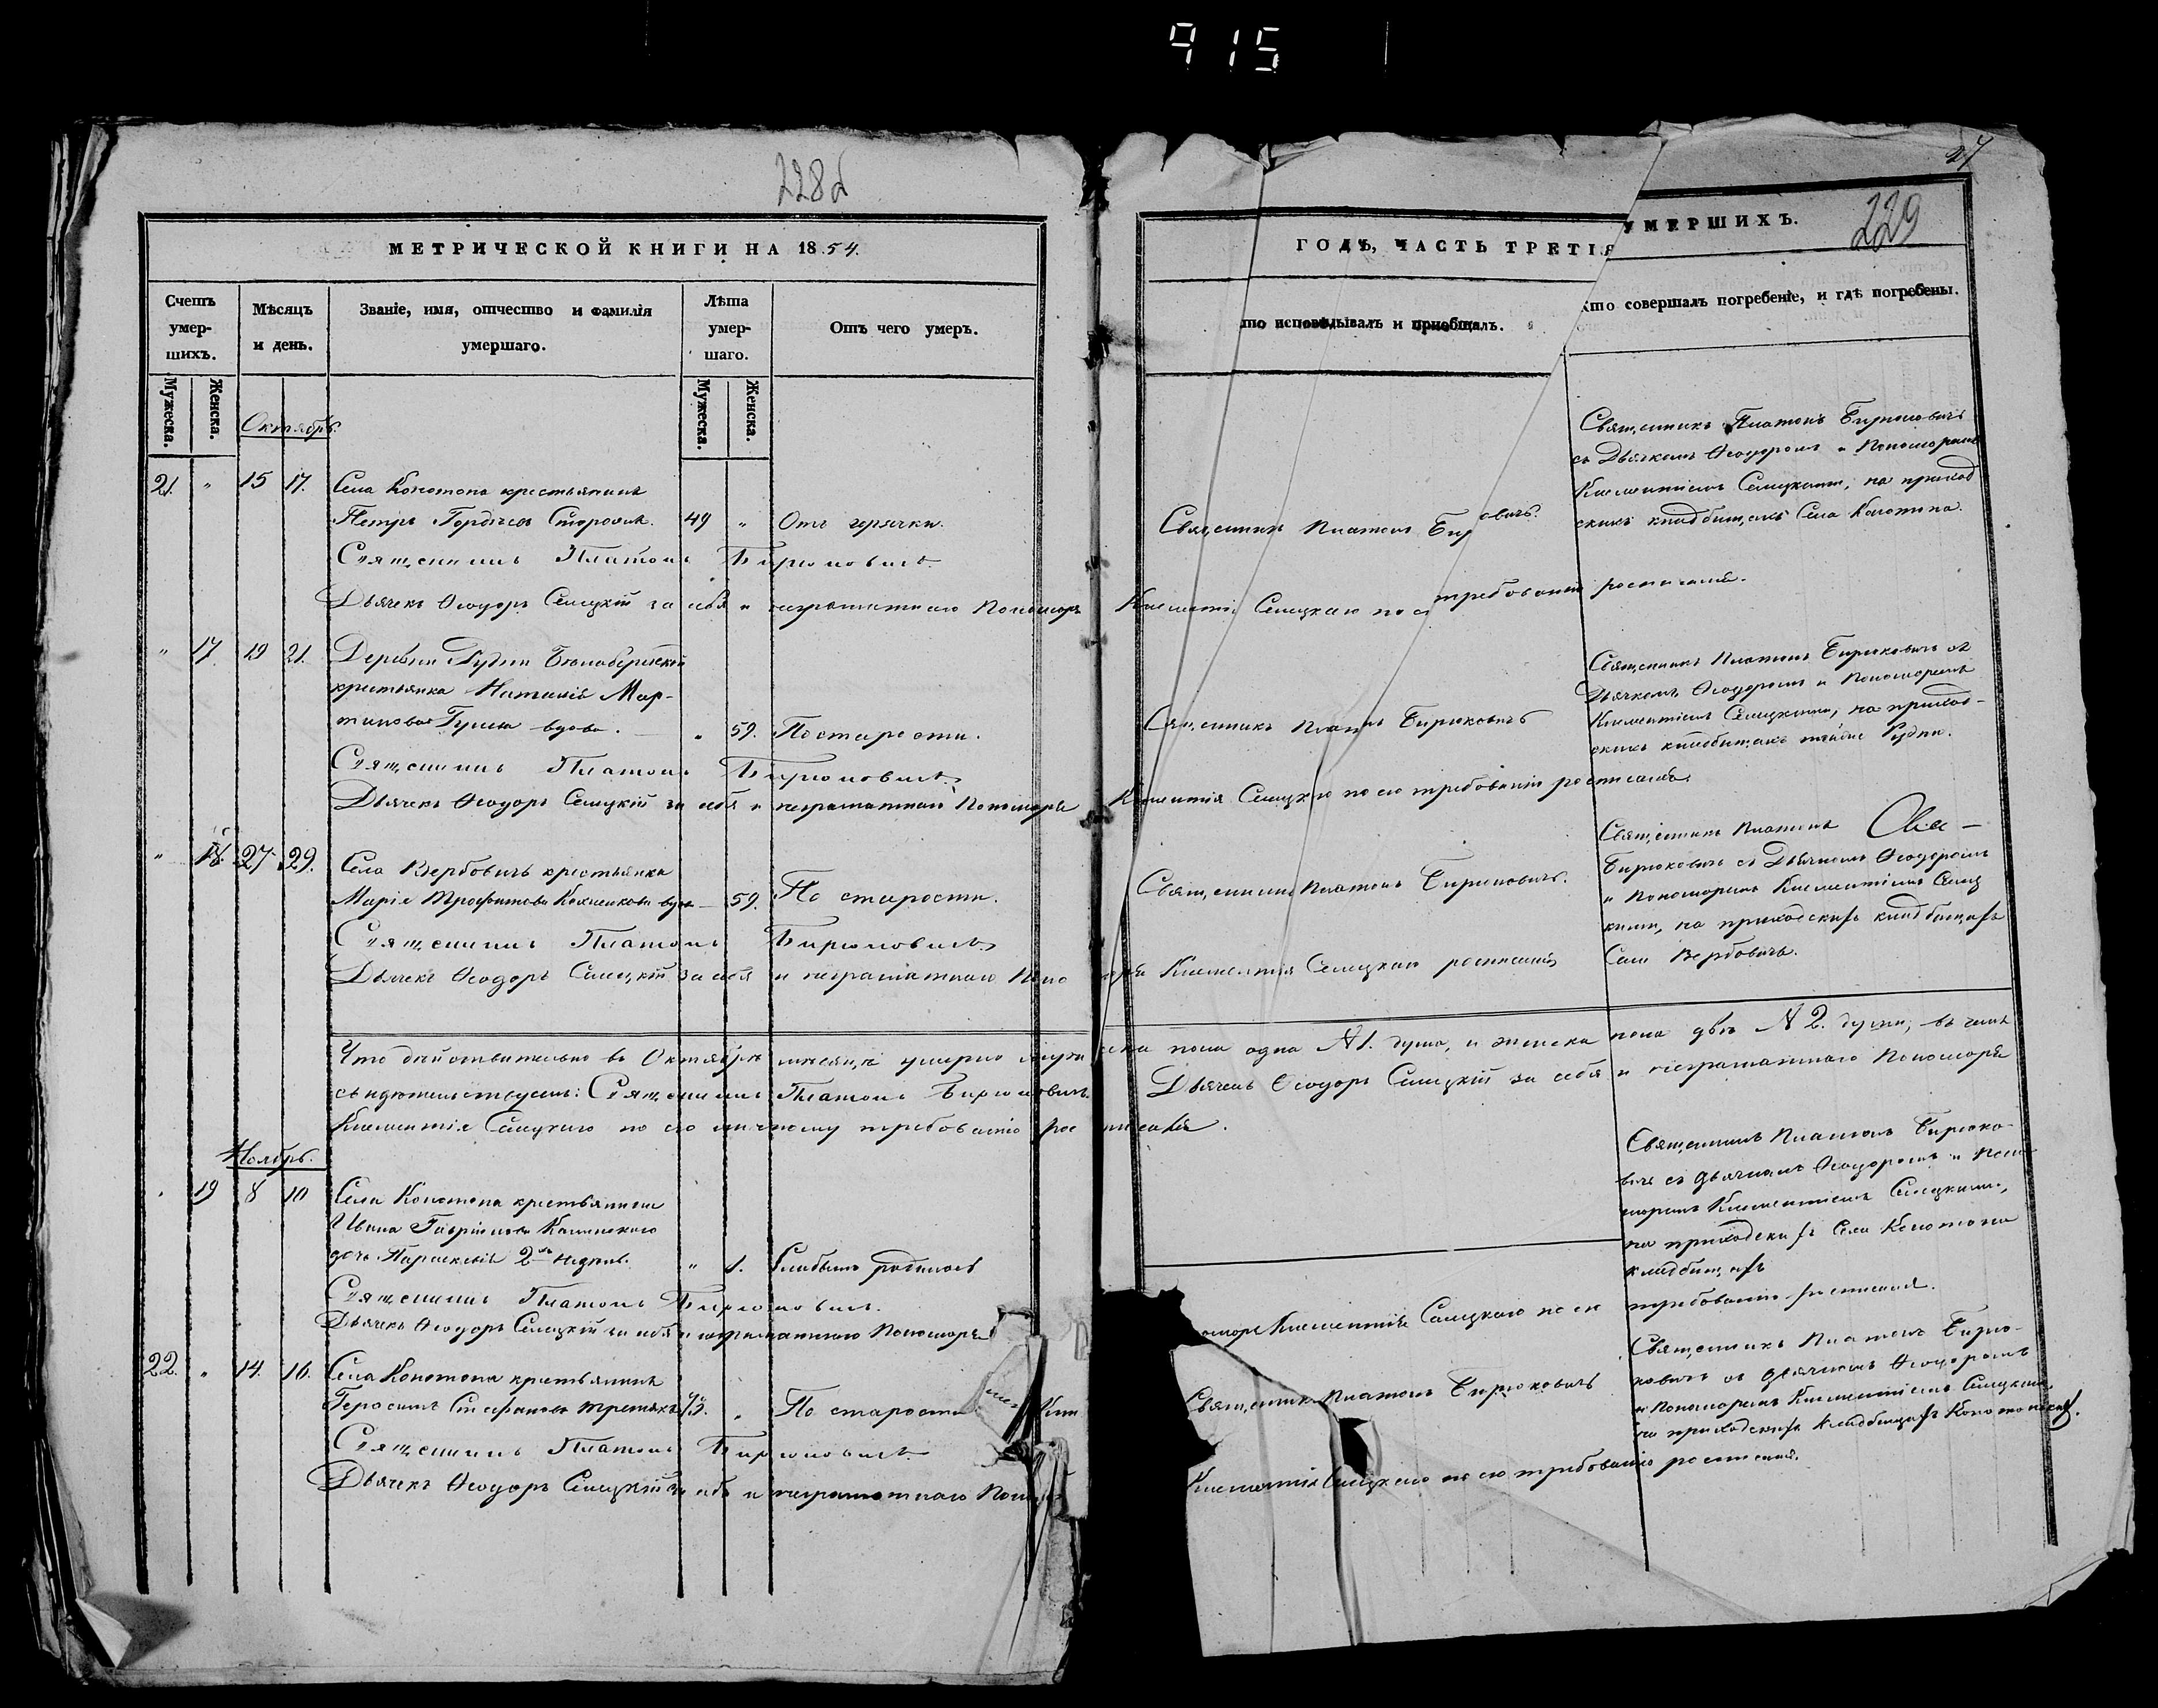 915
228
27
229
МЕТРИЧЕСКОЙ КНИГИ НА 1854.
ГОДЪ, ЧАСТЬ ТРЕТІЯ
УМЕРШИХЪ.
Счетъ умер-шихъ.
Мѣсяцъ и день.
Званіе, имя, отчество и фамилія умершаго.
Лѣта умер-шаго.
Отъ чего умеръ.
то исповѣдывалъ и пріобщалъ.
Кто совершалъ погребеніе, и гдѣ погребены.
Мужеска.
Женска.
Мужеска.
Женска.
Октябрь.
21. " 15 17. Села Конотопа крестьянинъ
Петръ Гордѣевъ 49 " Отъ горячки.
Священникъ Платонъ Бирюковичъ.
Священникъ Платонъ Бирюковичъ
съ Дьячкомъ Ѳеодоромъ и Пономаремъ
Климентіемъ Селецкимъ, на приход
скихъ кладбищахъ Села Конотопа.
Священникъ Платонъ Бирюковичъ
Дьячекъ Ѳеодоръ Селецкій за себя и неграматнаго Пономаря Климентія Селецкаго по его требованію росписался.
" 17. 19 21. Деревни Рудни
крестьянка Наталія Мар-
тинова вдова. " 59. По старости.
Священникъ Платонъ Бирюковичъ
Священникъ Платонъ Бирюковичъ съ
Дьячкомъ Ѳеодоромъ и Пономаремъ
Климентіемъ Селецкимъ, на приход-
скихъ кладбищахъ Рудни.
Священникъ Платонъ Бирюковичъ
Дьячекъ Ѳеодоръ Селецкій за себя и неграматнаго Пономаря Климентія Селецкаго по его требованію росписался.
" 18. 27. 29. Села Вербовичъ крестьянка
Марія Трофимова вдова 59. По старости.
Священникъ Платонъ Бирюковичъ.
Священникъ Платонъ
Бирюковичъ съ Дьячкомъ Ѳеодоромъ
и Пономаремъ Климентіемъ Селец
кимъ, на приходскихъ кладбищахъ
Села Вербовичъ.
Священникъ Платонъ Бирюковичъ
Дьячекъ Ѳеодоръ Селецкій за себя и неграматнаго Пономаря Климентія Селецкаго росписался
Что дѣйствительно въ Октябрѣ мѣсяцѣ умерло мужеска пола одна № 1. душа, и женска пола двѣ № 2. души, въ чемъ
свидѣтельствуемъ: Священникъ Платонъ Бирюковичъ. Дьячекъ Ѳеодоръ Селецкій за себя и неграматнаго Пономаря
Климентія Селецкаго по его личному требованію росписался.
Ноябрь.
" 19 8 10 Села Конотопа крестьянина
Ивана Гаврилова Калинскаго
дочь Параскевія 2 недѣль. " 1. Слабымъ родилась
Священникъ Платонъ Бирюко-
вичъ съ Дьячкомъ Ѳеодоромъ и Поно-
маремъ Климентіемъ Селецкимъ,
на приходскихъ Села Конотопа
кладбищахъ
Священникъ Платонъ Бирюковичъ.
Дьячекъ Ѳеодоръ Селецкій за себя и неграматнаго Пономаря Климентія Селецкаго по его требованію росписался.
22. " 14. 16. Села Конотопа крестьянинъ
Герасимъ Стефановъ " По старости
Священникъ Платонъ Бирюковичъ
Священникъ Платонъ Бирю-
ковичъ съ Дьячкомъ Ѳеодоромъ
и Пономаремъ Климентіемъ Селецкимъ,
на приходскихъ кладбищахъ Конотопскихъ.
Священникъ Платонъ Бирюковичъ.
Дьячекъ Ѳеодоръ Селецкій за себя и неграматнаго Климентія Селецкаго по его требованію росписался.